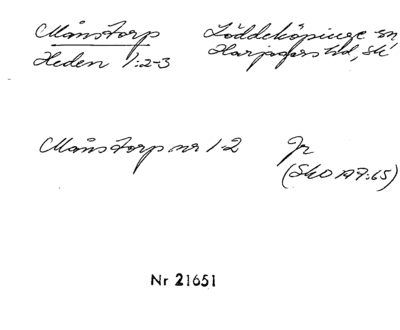 Månstorp Löddeköpinge sn
Heden 1:2-3 Harjagers hd, Sk
Månstorp nr 1-2 Jr
(SkO A 7:65)
Nr 21651